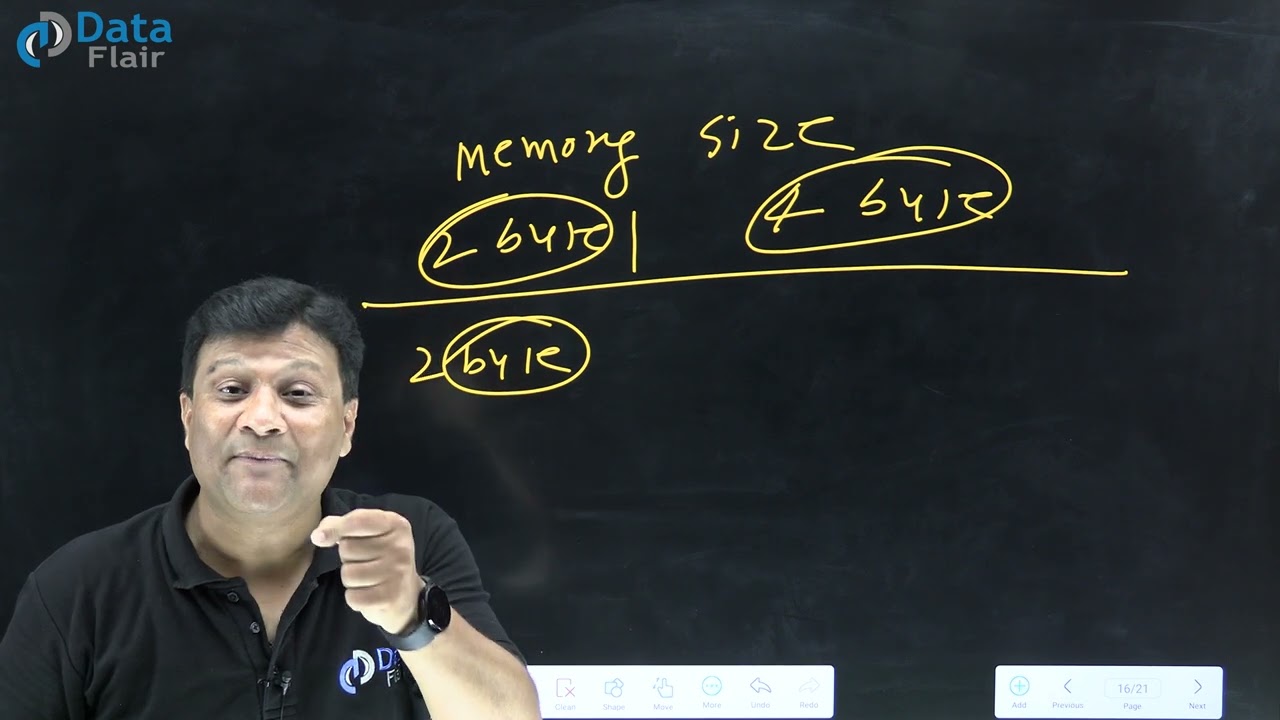 Data
Flair
memory size
2 byte | 4 byte
2 byte
Data
Flair
Clean Shape Move More Undo Redo
Add Previous 16/21 Page Next